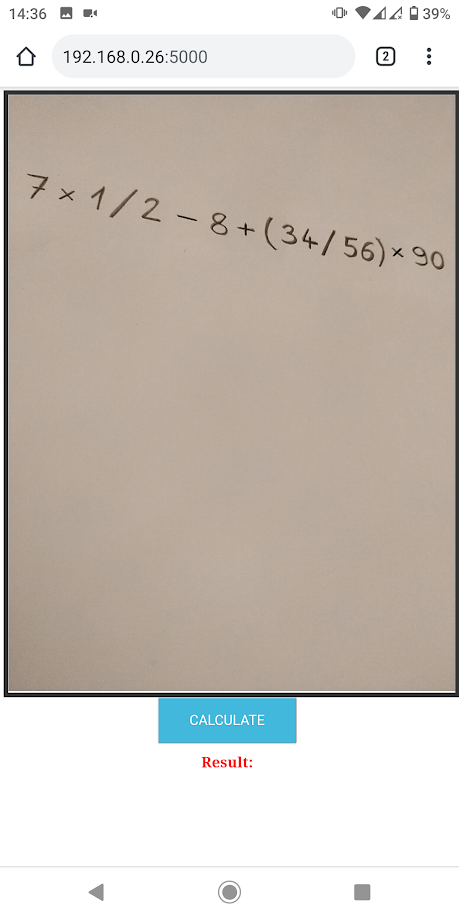 14:36 39%
192.168.0.26:5000 2
7 × 1 / 2 − 8 + (34 / 56) × 90
CALCULATE
Result: